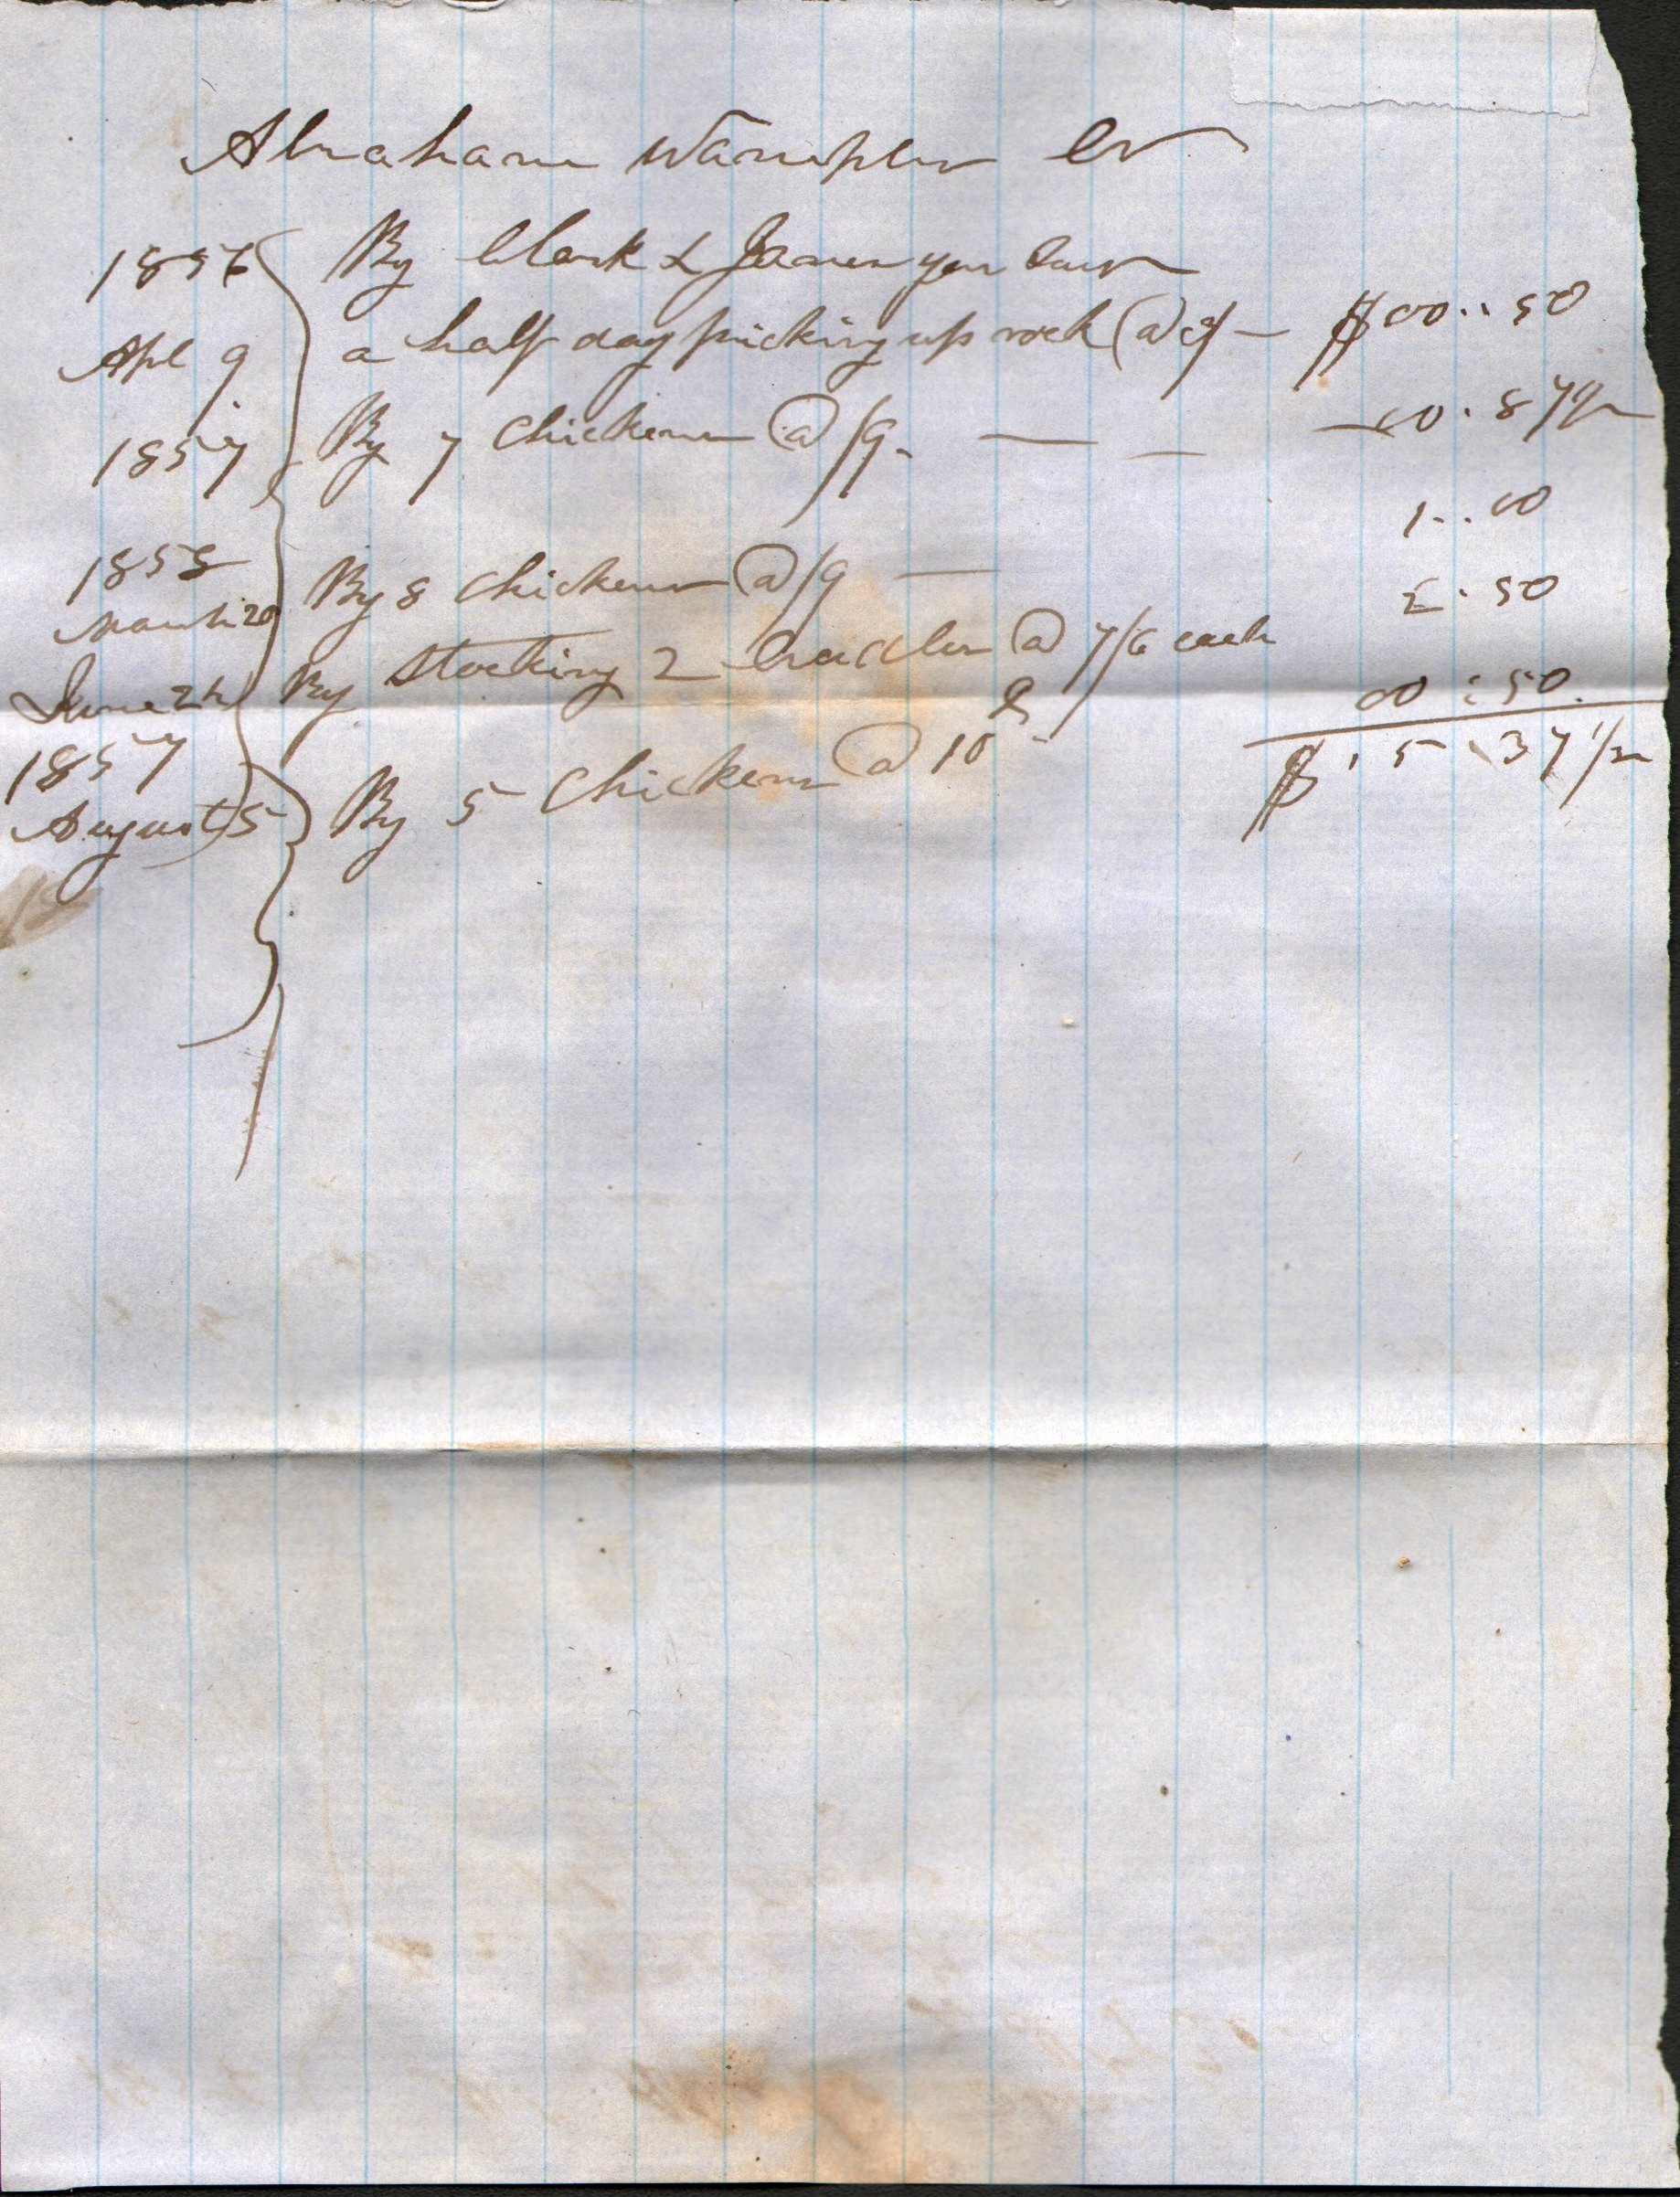 Abraham Wampler Cr
1856 By Clark & James your Sons
Apl 9 a half day picking up rock @ — $00..50
1857 By 7 Chickens @ /9. — — 00.87½
1..00
1858 By 8 Chickens @ /9 —
March 20 2.50
June 24 By Stocking 2 Cradles @ 7/6 each
00:50.
1857 By 5 Chickens @ 10 c $.5.37½
August 5